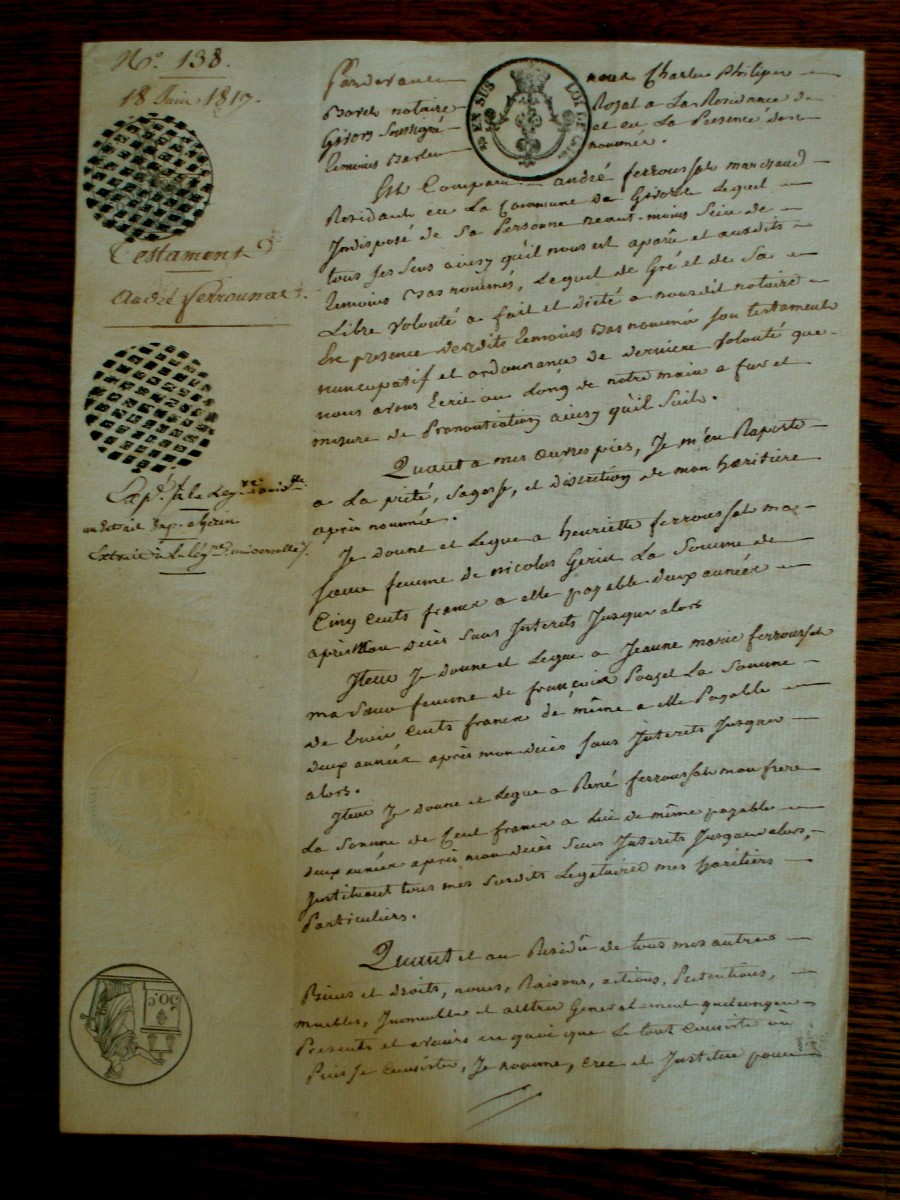 N.º 138.
18 Juin 1817.
Testament D
André ferroussat.
Exp.é
un Extrait Exp. a Gerin
Extrait à universelle
EN SUS
LOI DE
30c.
Pardevant nous Charles Philipe
Bard notaire Royal a La Residance de
Givors soussigné et en La Presence des
temoins Bas nommés.
Est Comparu andré ferroussat marchand
Residant en La Commune de Givors Lequel
Indisposé de Sa Personne neant-moins Sein de
tous ses Sens ainsy qu'il nous est aparû et auxdits
temoins Bas nommés, Lequel de Gré et de Sa
Libre Volonté a fait et dicté a nousdit notaire
En presence desdits temoins Bas nommés son testament
nuncupatif et ordonnance de derniere Volonté que
nous avons Ecrit au Long de notre main a fur et
mesure de Prononciation ainsy qu'il Suit.
Quant a mes œuvres pies, Je m'en Raporte
a La pieté, Sagesse, et discretion de mon heritiere
après nommée.
Je donne et Legue a henriette ferroussat ma
sœur femme de nicolas Gerin La Somme de
Cinq Cents francs a elle payable deux années
après mon décès Sans Interets Jusqu'alors
Item Je donne et Legue a Jeanne marie ferroussat
ma sœur femme de françois Pouzet La Somme
de trois Cents francs de même a elle Payable
deux années après mon décès sans Interets Jusqu'a
alors.
Item Je donne et Legue a René ferroussat mon frere
La Somme de Cent francs a Lui de même payable
deux années après mon décès Sans Interets Jusqu'alors,
Instituant tous mes Susdits Legataires mes heritiers
Particuliers.
Quant et au Residû de tous mes autres
Biens et droits, noms, Raisons, actions, Pretentions,
meubles, Immeubles et autres Generalement quelconques
Presents et avenirs en quoi que Le tout Consiste où
Puisse Consister, Je nomme, crée et Institue pour